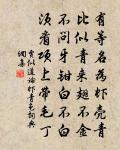 有等名為虾壳青
比似青来翅不金
不问牙钳白不白
須看项上带毛丁
贾似道论虾青色词典
烟集